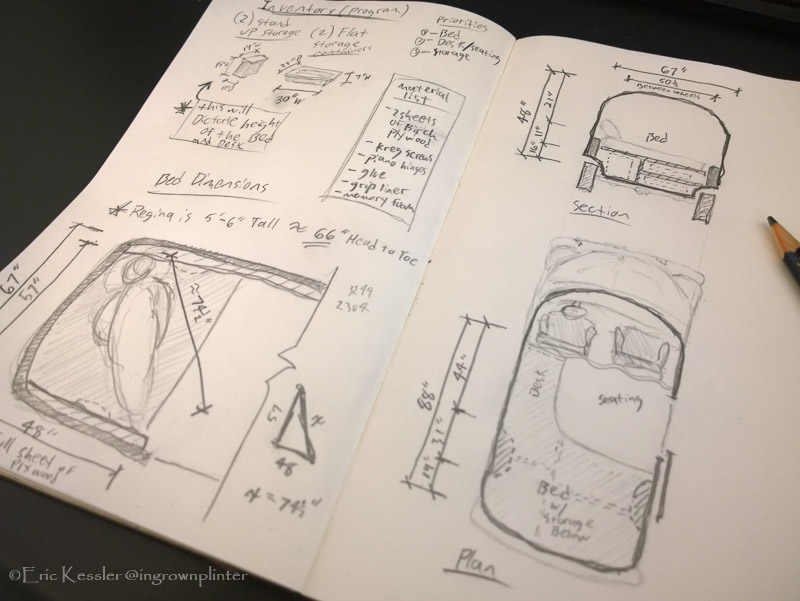 Inventory (program)
(2) stand
up storage
(2) Flat
storage
containers
30"W
7"H
* this will
Dictate height
of the Bed
and Desk
Priorities
①- Bed
②- Desk/seating
③- Storage
Material
list
- 2 sheets
of Birch
Plywood
- Kreg screws
- piano hinges
- glue
- grip liner
- memory foam
Bed Dimensions
* Regina is 5'-6" Tall ≈ 66" Head to Toe
67"
57"
≈74½"
48"
Full sheet of
Plywood
57
x
48
x = 74½"
2304
67"
50½"
Between wheels
48"
21"
11"
16"
Bed
Section
88"
44"
31"
19"
Desk
Seating
Bed
w/
storage
Below
Plan
©Eric Kessler @ingrownplinter